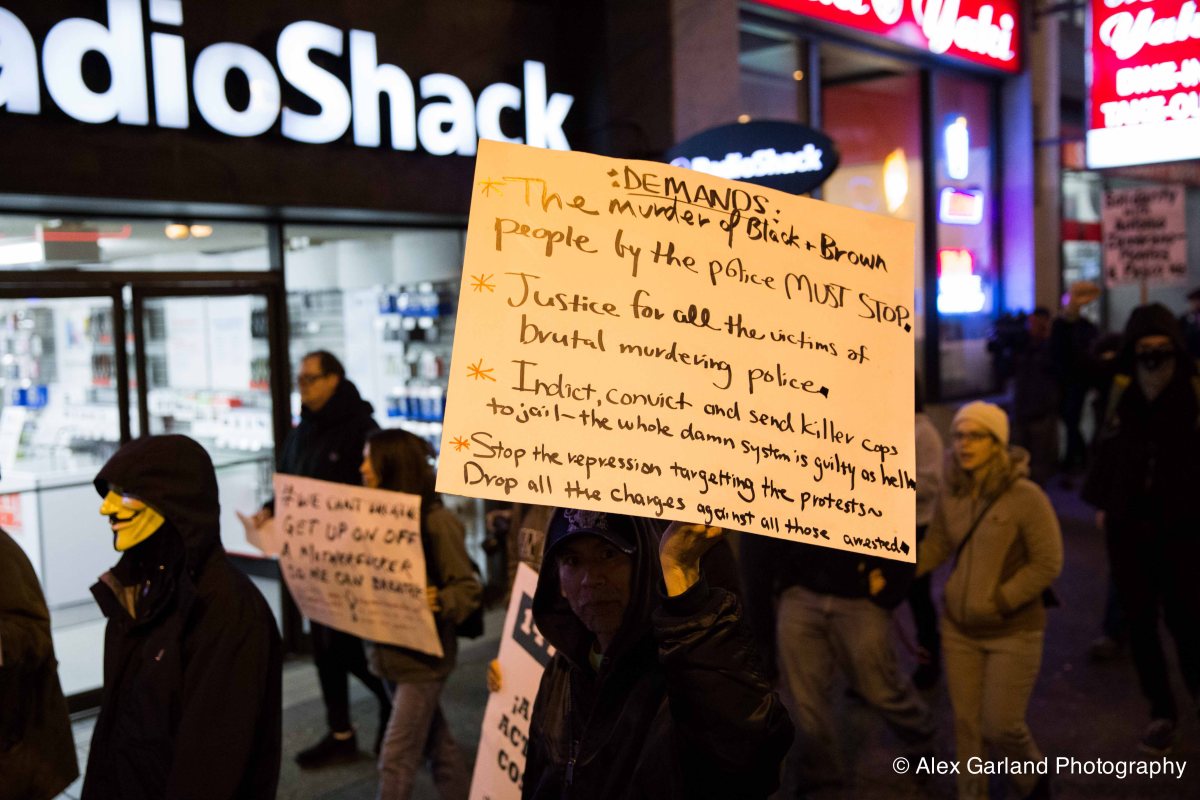 adioShack
Yaki
Yaki
DINE-IN
TAKE-OU
RadioShack
:DEMANDS:
* The murder of Black + Brown
people by the police MUST STOP.
* Justice for all the victims of
brutal murdering police.
* Indict, convict and send killer cops
to jail - the whole damn system is guilty as hell
* Stop the repression targetting the protests~
Drop all the charges against all those arrested.
GET UP ON OFF
A MOTHERFUCKER
SO WE CAN BREATHE
¡A
ACT
CO
© Alex Garland Photography